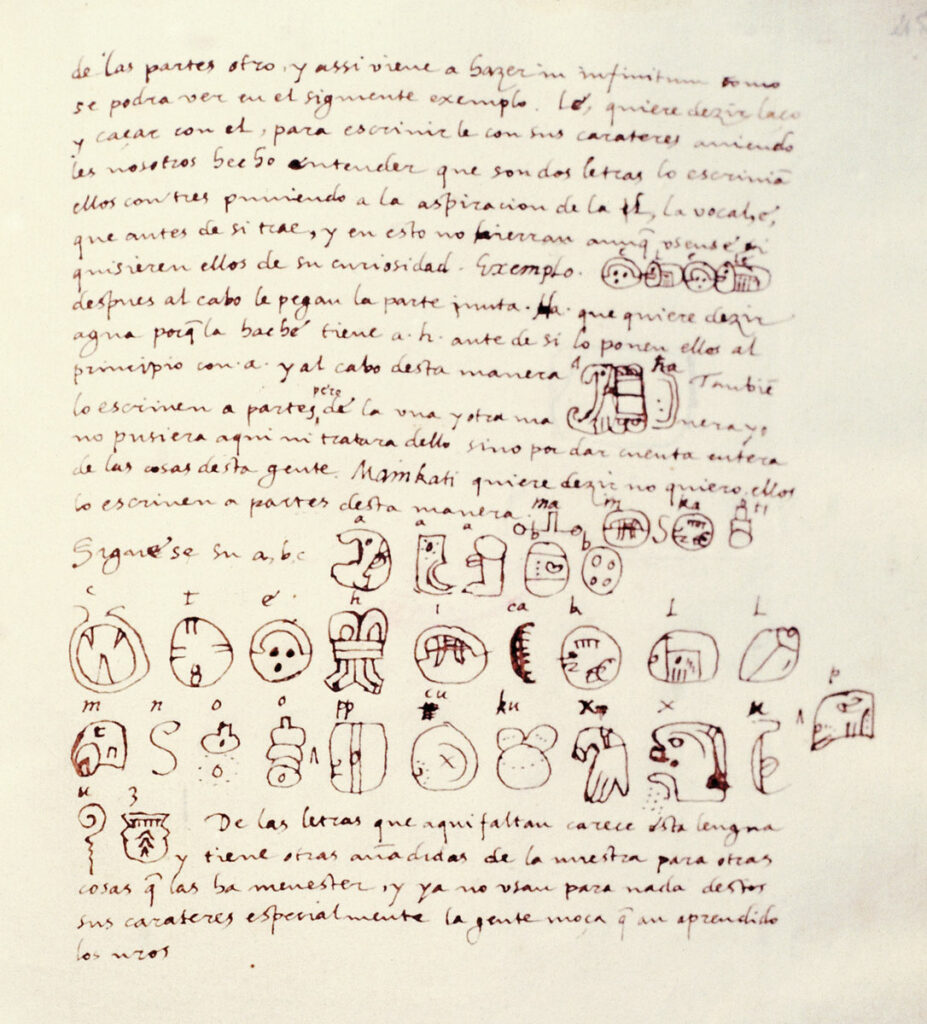 de las partes otro, y assi viene a hazer in infinitum como
se podra ver en el siguiente exemplo. Lé, quiere dezir laço
y caçar con el, para escriuirle con sus carateres auiendo
les nosotros hecho entender que son dos letras lo escriuiã
ellos con tres puniendo a la aspiracion de la l, la vocal, é,
que antes de si trae, y en esto no hierran aunq̃ vsense
quisieren ellos de su curiosidad. Exemplo. é l é lé
despues al cabo le pegan la parte junta. Ha. que quiere dezir
agua porq̃ la haché tiene a. h. ante de si lo ponen ellos al
principio con a. y al cabo desta manera a ha Tambiẽ
lo escriuen a partes pero de la vna y otra ma nera yo
no pusiera aqui ni tratara dello sino por dar cuenta entera
de las cosas desta gente. Mainkati quiere dezir no quiero, ellos
lo escriuen a partes desta manera. ma i n ka ti
Siguese su a, b, c. a a a b b
c t é h i ca k l l
m n o o pp cu ku x x u p
u z De las letras que aqui faltan carece esta lengua
y tiene otras añadidas de la nuestra para otras
cosas q̃ las ha menester, y ya no vsan para nada destos
sus carateres especialmente la gente moça q̃ an aprendido
los nros